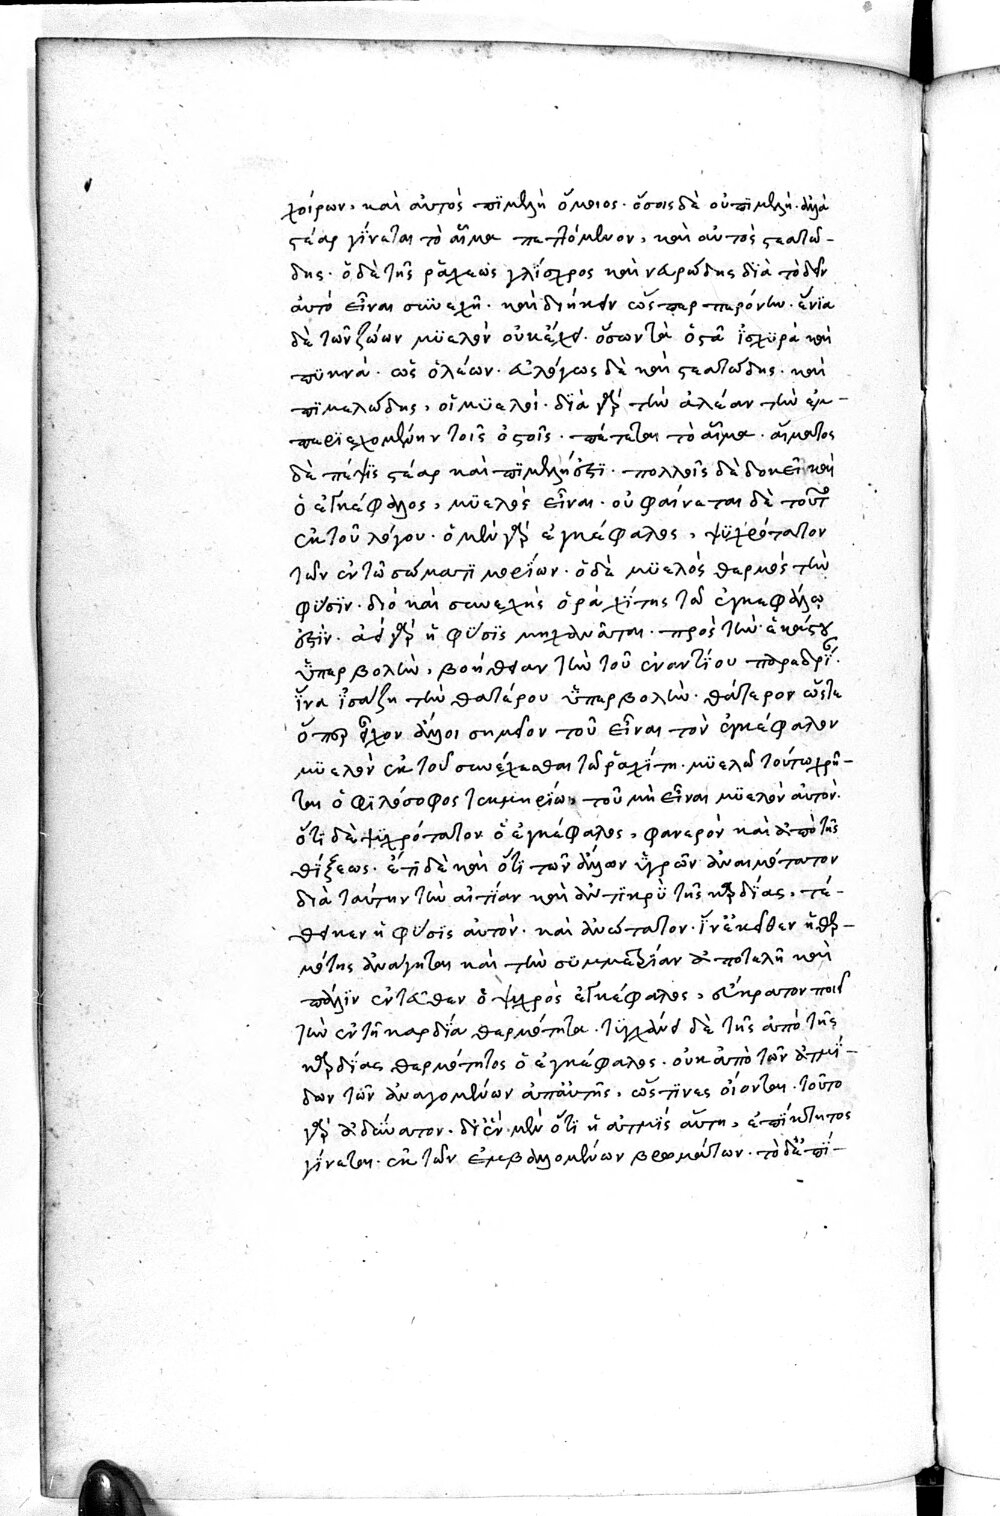 χοίρων, καὶ αὐτὸς πϊμελῆ ὅμοιος· ὅσοις δὲ οὐ πϊμελὴ· ἀλλὰ
στέαρ γίνεται τὸ αἷμα πεττόμενον, καὶ αὐτὸς στεατώ-
δης· ὁ δὲ τῆς ῥάχεως γλίσχρος καὶ νευρώδης διὰ τὸ δεῖν
αὐτὸ εἶναι συνεχῆ· καὶ διήκειν ὥσπερ νεῦρον· ἔνϊα
δὲ τῶν ζώων μϋελὸν οὐκ ἔχει· ὅσων τὰ ὀστᾶ ἰσχϋρὰ καὶ
πϋκνὰ· ὡς ὁ λέων· εὐλόγως δὲ καὶ στεατώδης· καὶ
πϊμελώδης, οἱ μϋελοὶ· διὰ γὰρ τὴν ἀλέαν τὴν ἐμ-
περϊεχομένην τοῖς ὀστοῖς· πέττεται τὸ αἷμα· αἵματος
δὲ πέψϊς στέαρ καὶ πϊμελή ἐστϊ· πολλοῖς δὲ δοκεῖ καὶ
ὁ ἐγκέφαλος, μϋελὸς εἶναι· οὐ φαίνεται δὲ τοῦτο
ἐκ τοῦ λόγου· ὁ μὲν γὰρ ἐγκέφαλος, ψϋχρότατον
τῶν ἐν τῶ σώματϊ μορίων· ὁ δὲ μϋελὸς θερμὸς τὴν
φύσϊν· διὸ καὶ συνεχὴς ὁ ῥαχίτης τῶ ἐγκεφάλω
ἐστὶν· ἀεὶ γὰρ ἡ φύσϊς μηχανᾶται· πρὸς τὴν ἑκάστου
ὑπερβολὴν, βοήθειαν τὴν τοῦ ἐναντίου παρεδρίαν·
ἵνα ἰσάζη τὴν θατέρου ὑπερβολὴν· θάτερον ὥστε
ὅπερ εἶχον ἄλλοι σημεῖον τοῦ εἶναι τὸν ἐγκέφαλον
μϋελὸν ἐκ τοῦ συνέχεσθαι τῶ ῥαχίτη· μϋελῶ τούτω χρῆ-
ται ὁ φϊλόσοφος τεκμηρίω, τοῦ μὴ εἶναι μϋελὸν αὐτὸν·
ὅτϊ δὲ ψϋχρότατον ὁ ἐγκέφαλος, φανερὸν καὶ ἀπὸ τῆς
θίξεως· ἔτϊ δὲ καὶ ὅτϊ τῶν ἄλλων ὑγρῶν ἀναιμότατον
διὰ ταύτην τὴν αἰτίαν καὶ ἀντϊκρὺ τῆς καρδίας, τέ-
θεικεν ἡ φύσϊς αὐτὸν· καὶ ἀνώτατον· ἵν' ἐκεῖθεν ἡ θερ-
μότης ἀνάγηται καὶ τὴν συμμετρίαν ἀποτελῆ καὶ
πάλϊν ἐντεῦθεν ὁ ψϋχρὸς ἐγκέφαλος, εὔκρατον ποιεῖ
τὴν ἐν τῆ καρδία θερμότητα· τϋγχάνει δὲ τῆς ἀπὸ τῆς
καρδίας θερμότητος ὁ ἐγκέφαλος· οὐκ ἀπὸ τῶν ἀτμί-
δων τῶν ἀναγομένων ἀπ' αὐτῆς, ὥς τϊνες οἴονται· τοῦτο
γὰρ ἀδύνατον· δι' ἓν μὲν ὅτϊ ἡ ἀτμὶς αὕτη, ἐπίκτητος
γίνεται· ἐκ τῶν ἐμβαλλομένων βρωμάτων· τὸ δ' ἐπϊ-